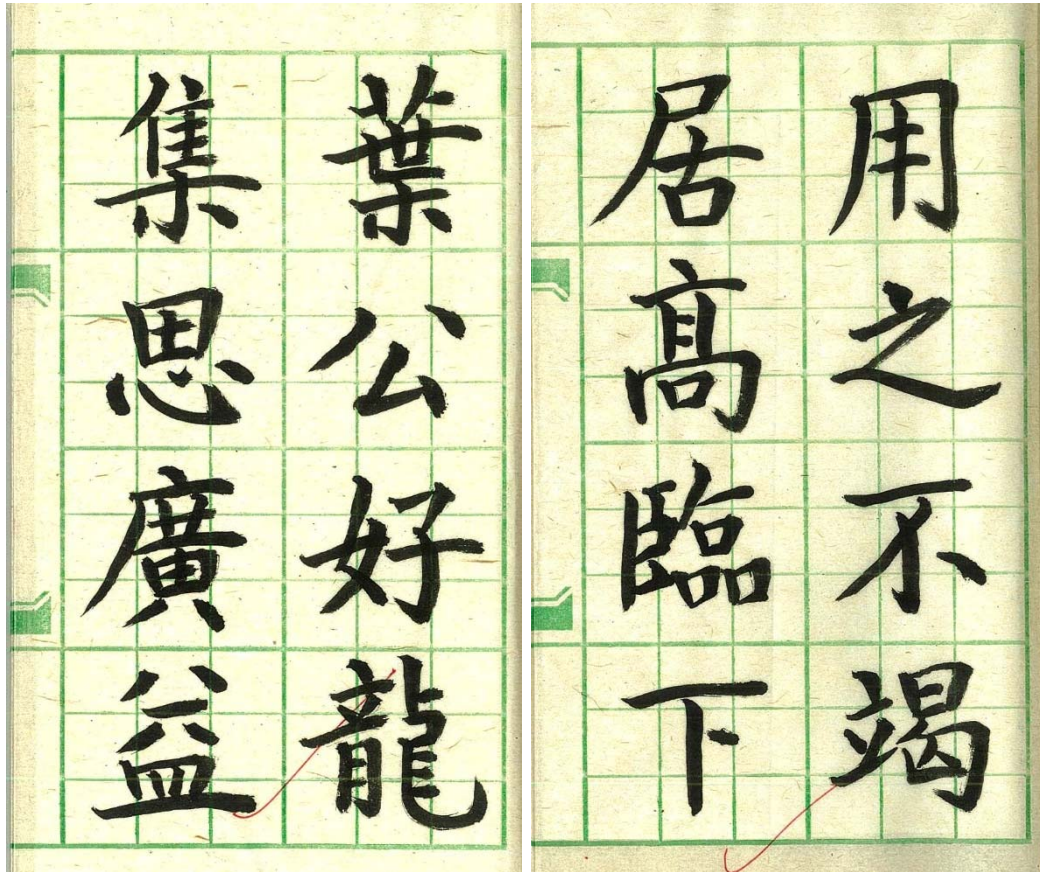 用之不竭
居高臨下
葉公好龍
集思廣益